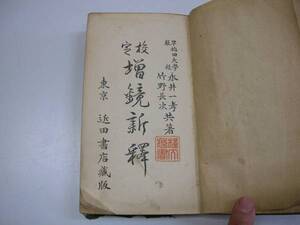 早稲田大學
教授
永井一孝
竹野長次
共著
校定
增鏡新釋
東京 近田書店藏版